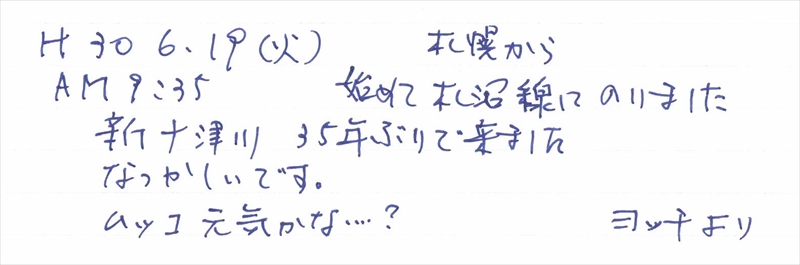 H30 6.19(火) 札幌から
AM9:35 始めて札沼線にのりました
新十津川 35年ぶりで来ました
なつかしいです。
ムッコ元気かな…?
ヨッチより